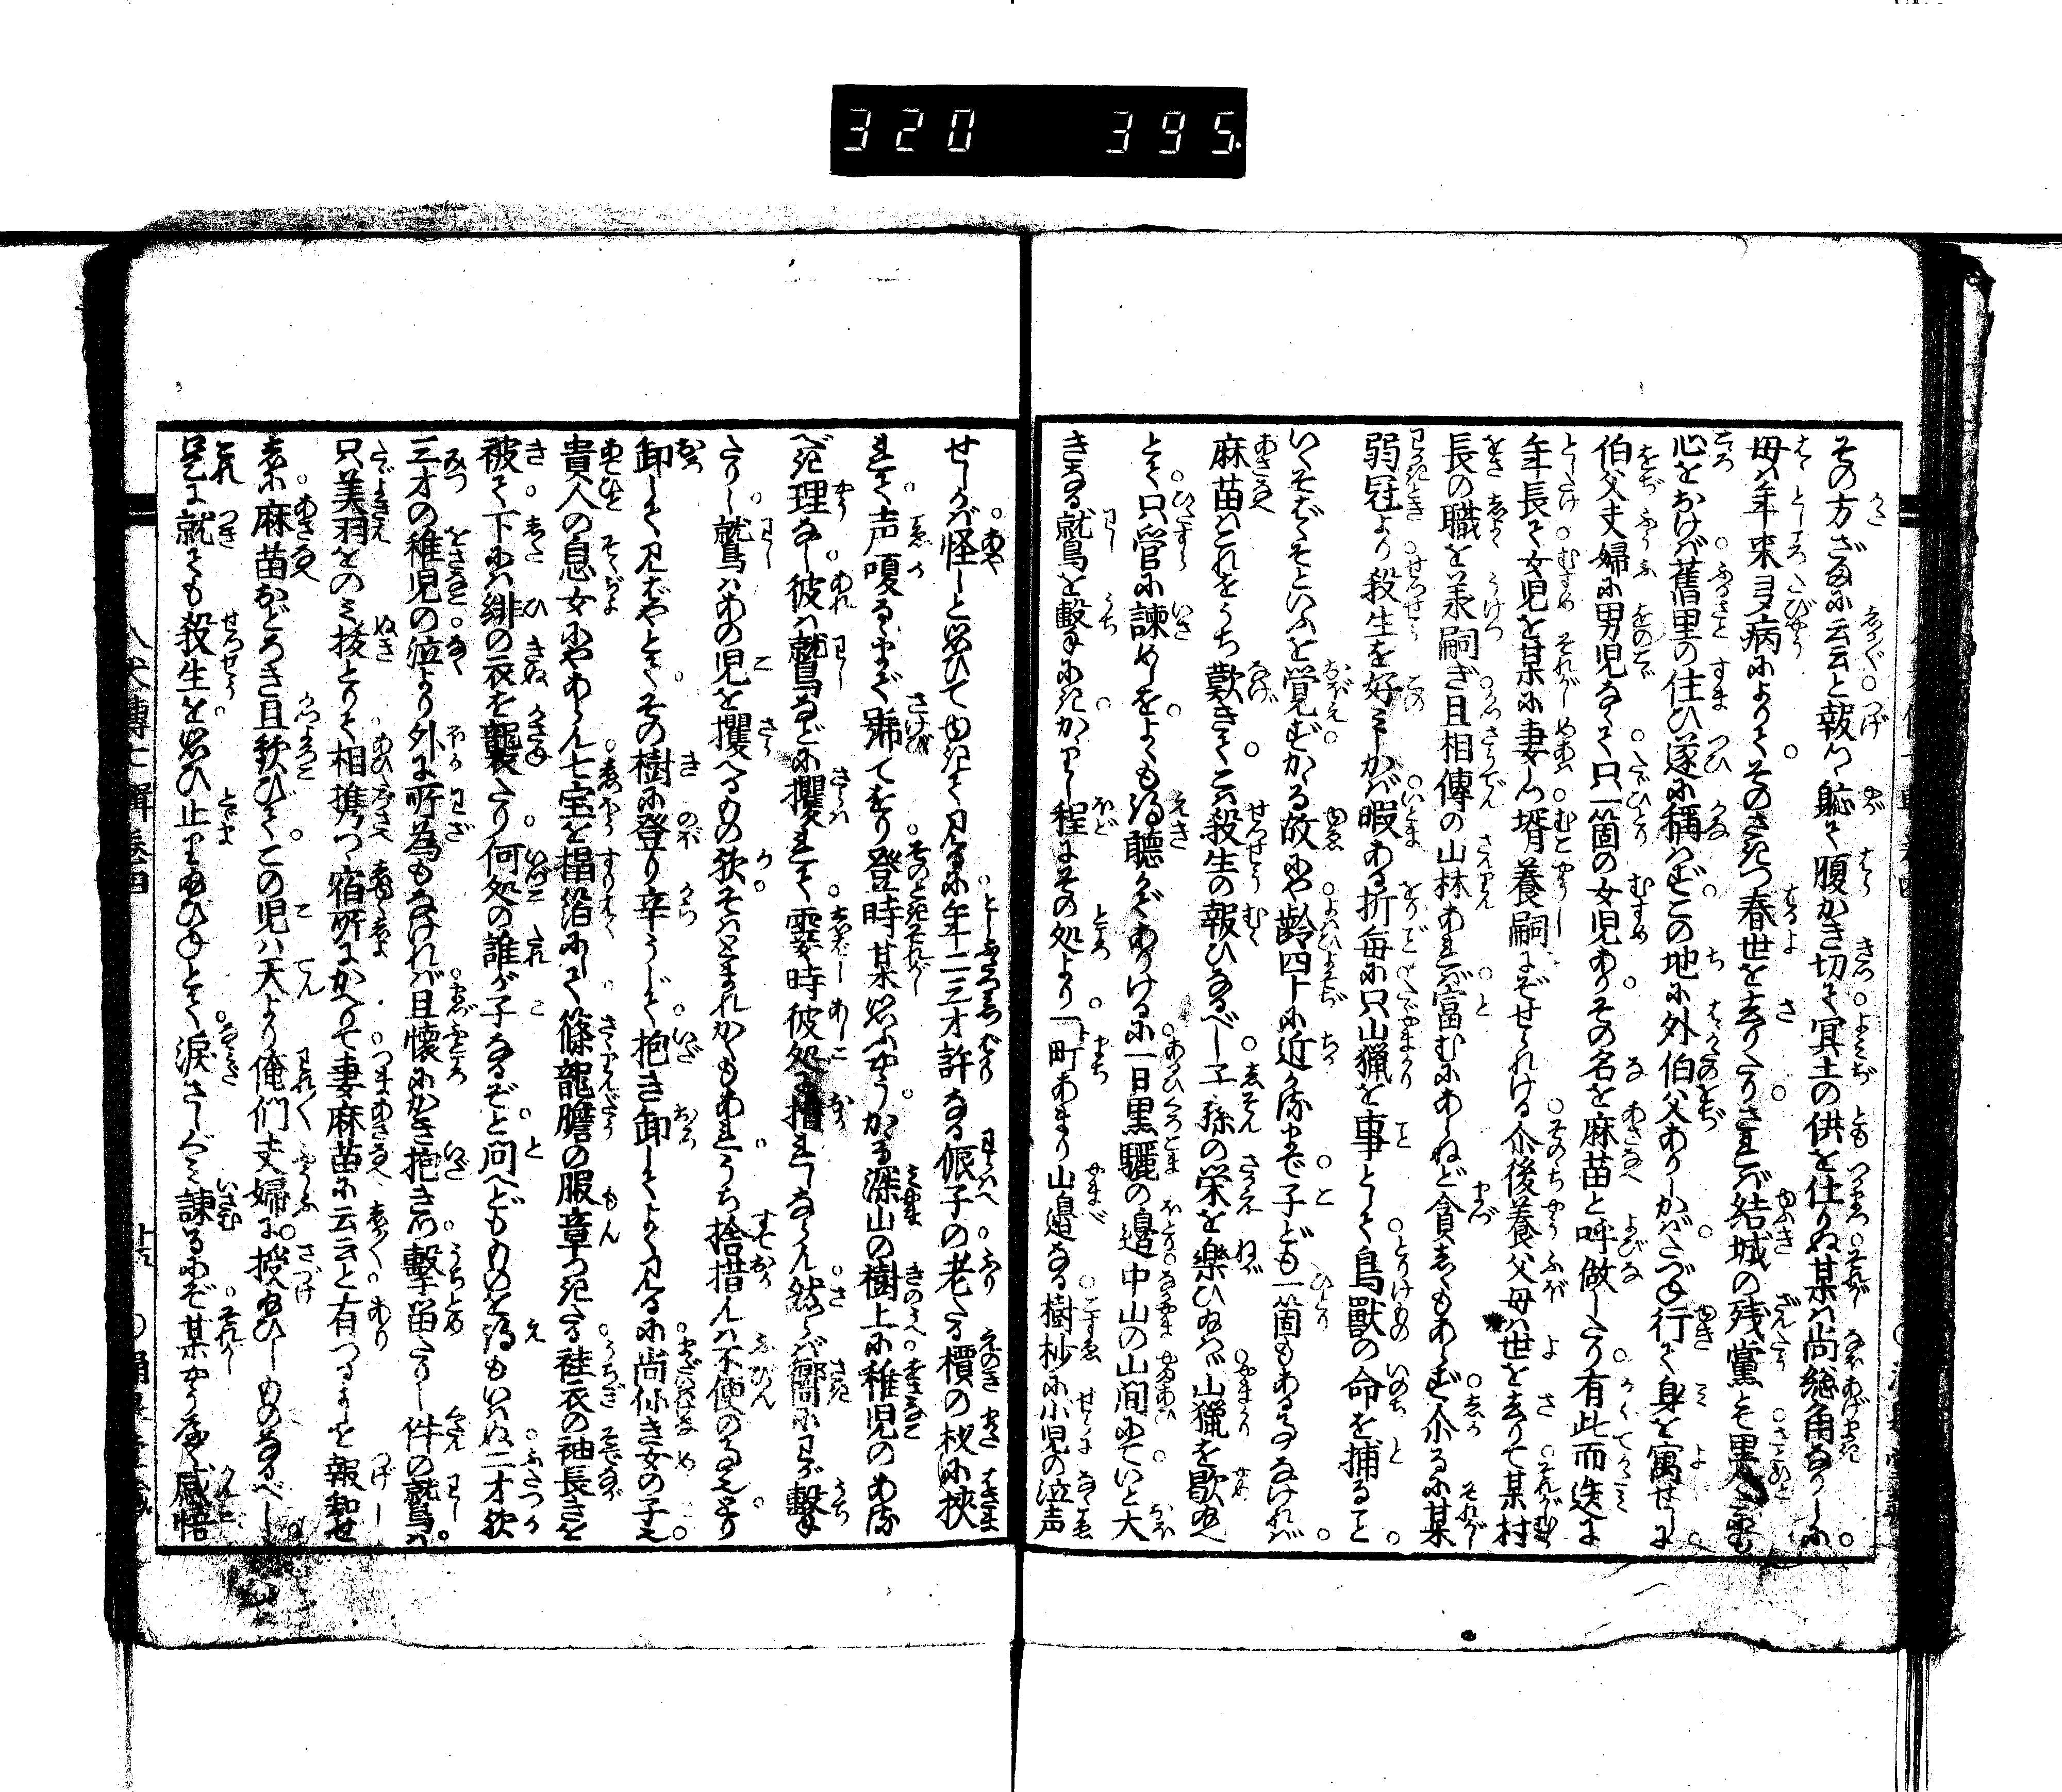 320 395
その方ざまに云云と報つゝ恥て腹かき切て冥土の供を仕りぬ某は尚総角なりしに
母は年来多病によりてそのさきつ春世を去りたりされば結城の残黨とて里人に
心をおけば舊里の住ひ遂に稱はずこの地に外伯父ありしかばたづね行て身を寓せしに
伯父夫婦に男児なくて只一箇の女児ありその名を麻苗と呼做したり有此而迭に
年長て女児を某に妻し壻養嗣にぞせられける尒後養父母は世を去りて某村
長の職を承嗣ぎ且相傳の山林あれば富むにあらねど貪しくもあらず尒るに某
弱冠より殺生を好みしかば暇ある折毎に只山猟を事として鳥獣の命を捕ること
いくそばくそといふを覚ずかゝる故にや齢四十に近きまで子ども一箇もあることなければ
麻苗はこれをうち歎きてこは殺生の報ひなるべし子孫の栄を楽ひ給はゞ山猟を歇給へ
とて只管に諫めしをよくも得聴かでありけるに一日黒驪の邉中山の山間にていと大
きなる就鳥を撃んにきかゝりし程にその処より一町あまり山邉なる樹杪に小児の泣声
せしかば怪しと思ひてゆきて見るに年二三才許なる侲子の老たる檟の杈に挟
まれて声嗄るまで號てをり登時某思ふやうかゝる深山の樹上に稚児のある
べき理なし彼は就鳥などに攫れて霎時彼処に措れしならん然らば嚮にわが撃
たりし就鳥はあの児を攫へるもの欤そはとまれかくもあれうち捨措んは不便のことなり
卸して見ばやとてその樹に登り辛うじて抱き卸してよく見るに尚稚き女の子也
貴人の息女にやあらん七宝を摺箔にして篠龍膽の服章つきたる袿衣の袖長きを
被て下には緋の衣を襲たり何処の誰が子なるぞと問へどもものを得もいはぬ二才欤
三才の稚児の泣より外に所為もなければ且懐にかき抱きつゝ撃留たりし件の就鳥は
只美羽をのミ抜とりて相携つゝ宿所にかへりて妻麻苗に云云と有つるよしを報知せ
しに麻苗おどろき且歓びてこの児は天より俺們夫婦に授給ひしものなるべし
是に就ても殺生を思ひ止り給ひねとて涙さしぐミ諫るにぞ某やうやく感悟
八犬傳七輯巻四